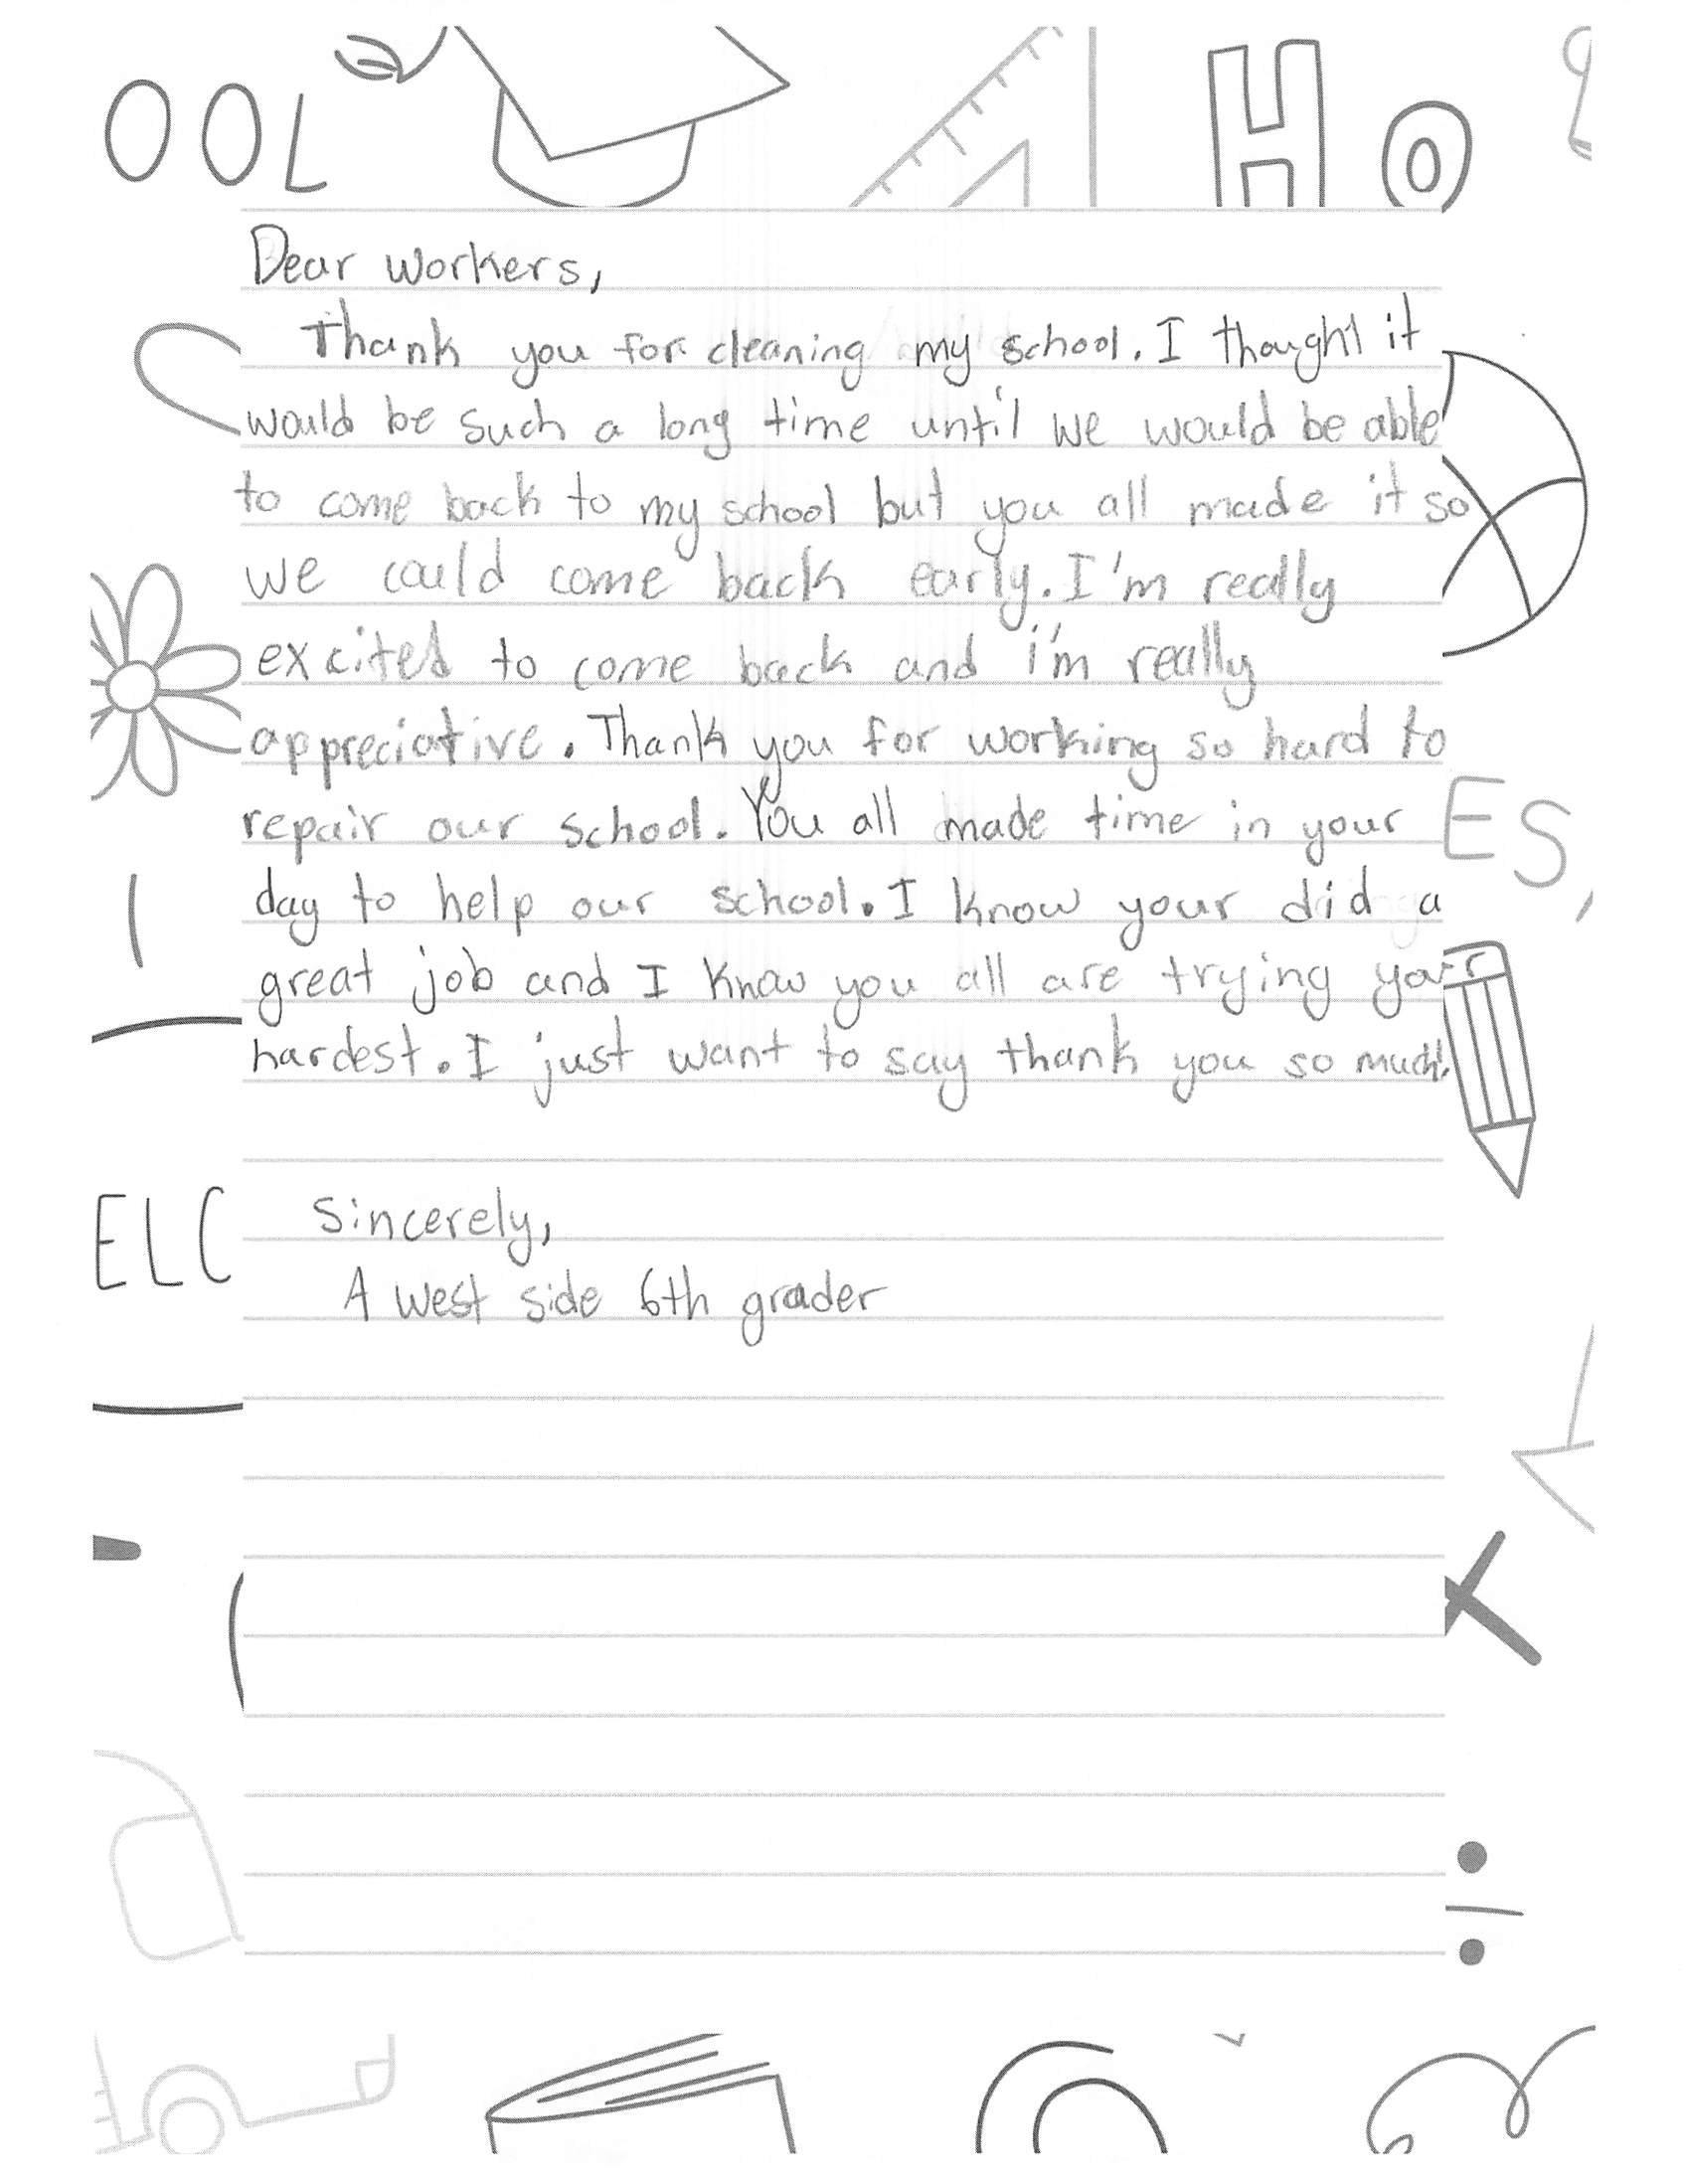 OOL
HO
Dear workers,
Thank you for cleaning my school. I thought it
would be such a long time until we would be able
to come back to my school but you all made it so
we could come back early. I'm really
excited to come back and i'm really
appreciative. Thank you for working so hard to
repair our school. You all made time in your
day to help our school. I know your did a
great job and I know you all are trying your
hardest. I just want to say thank you so much!
ES,
ELC
Sincerely,
A west side 6th grader